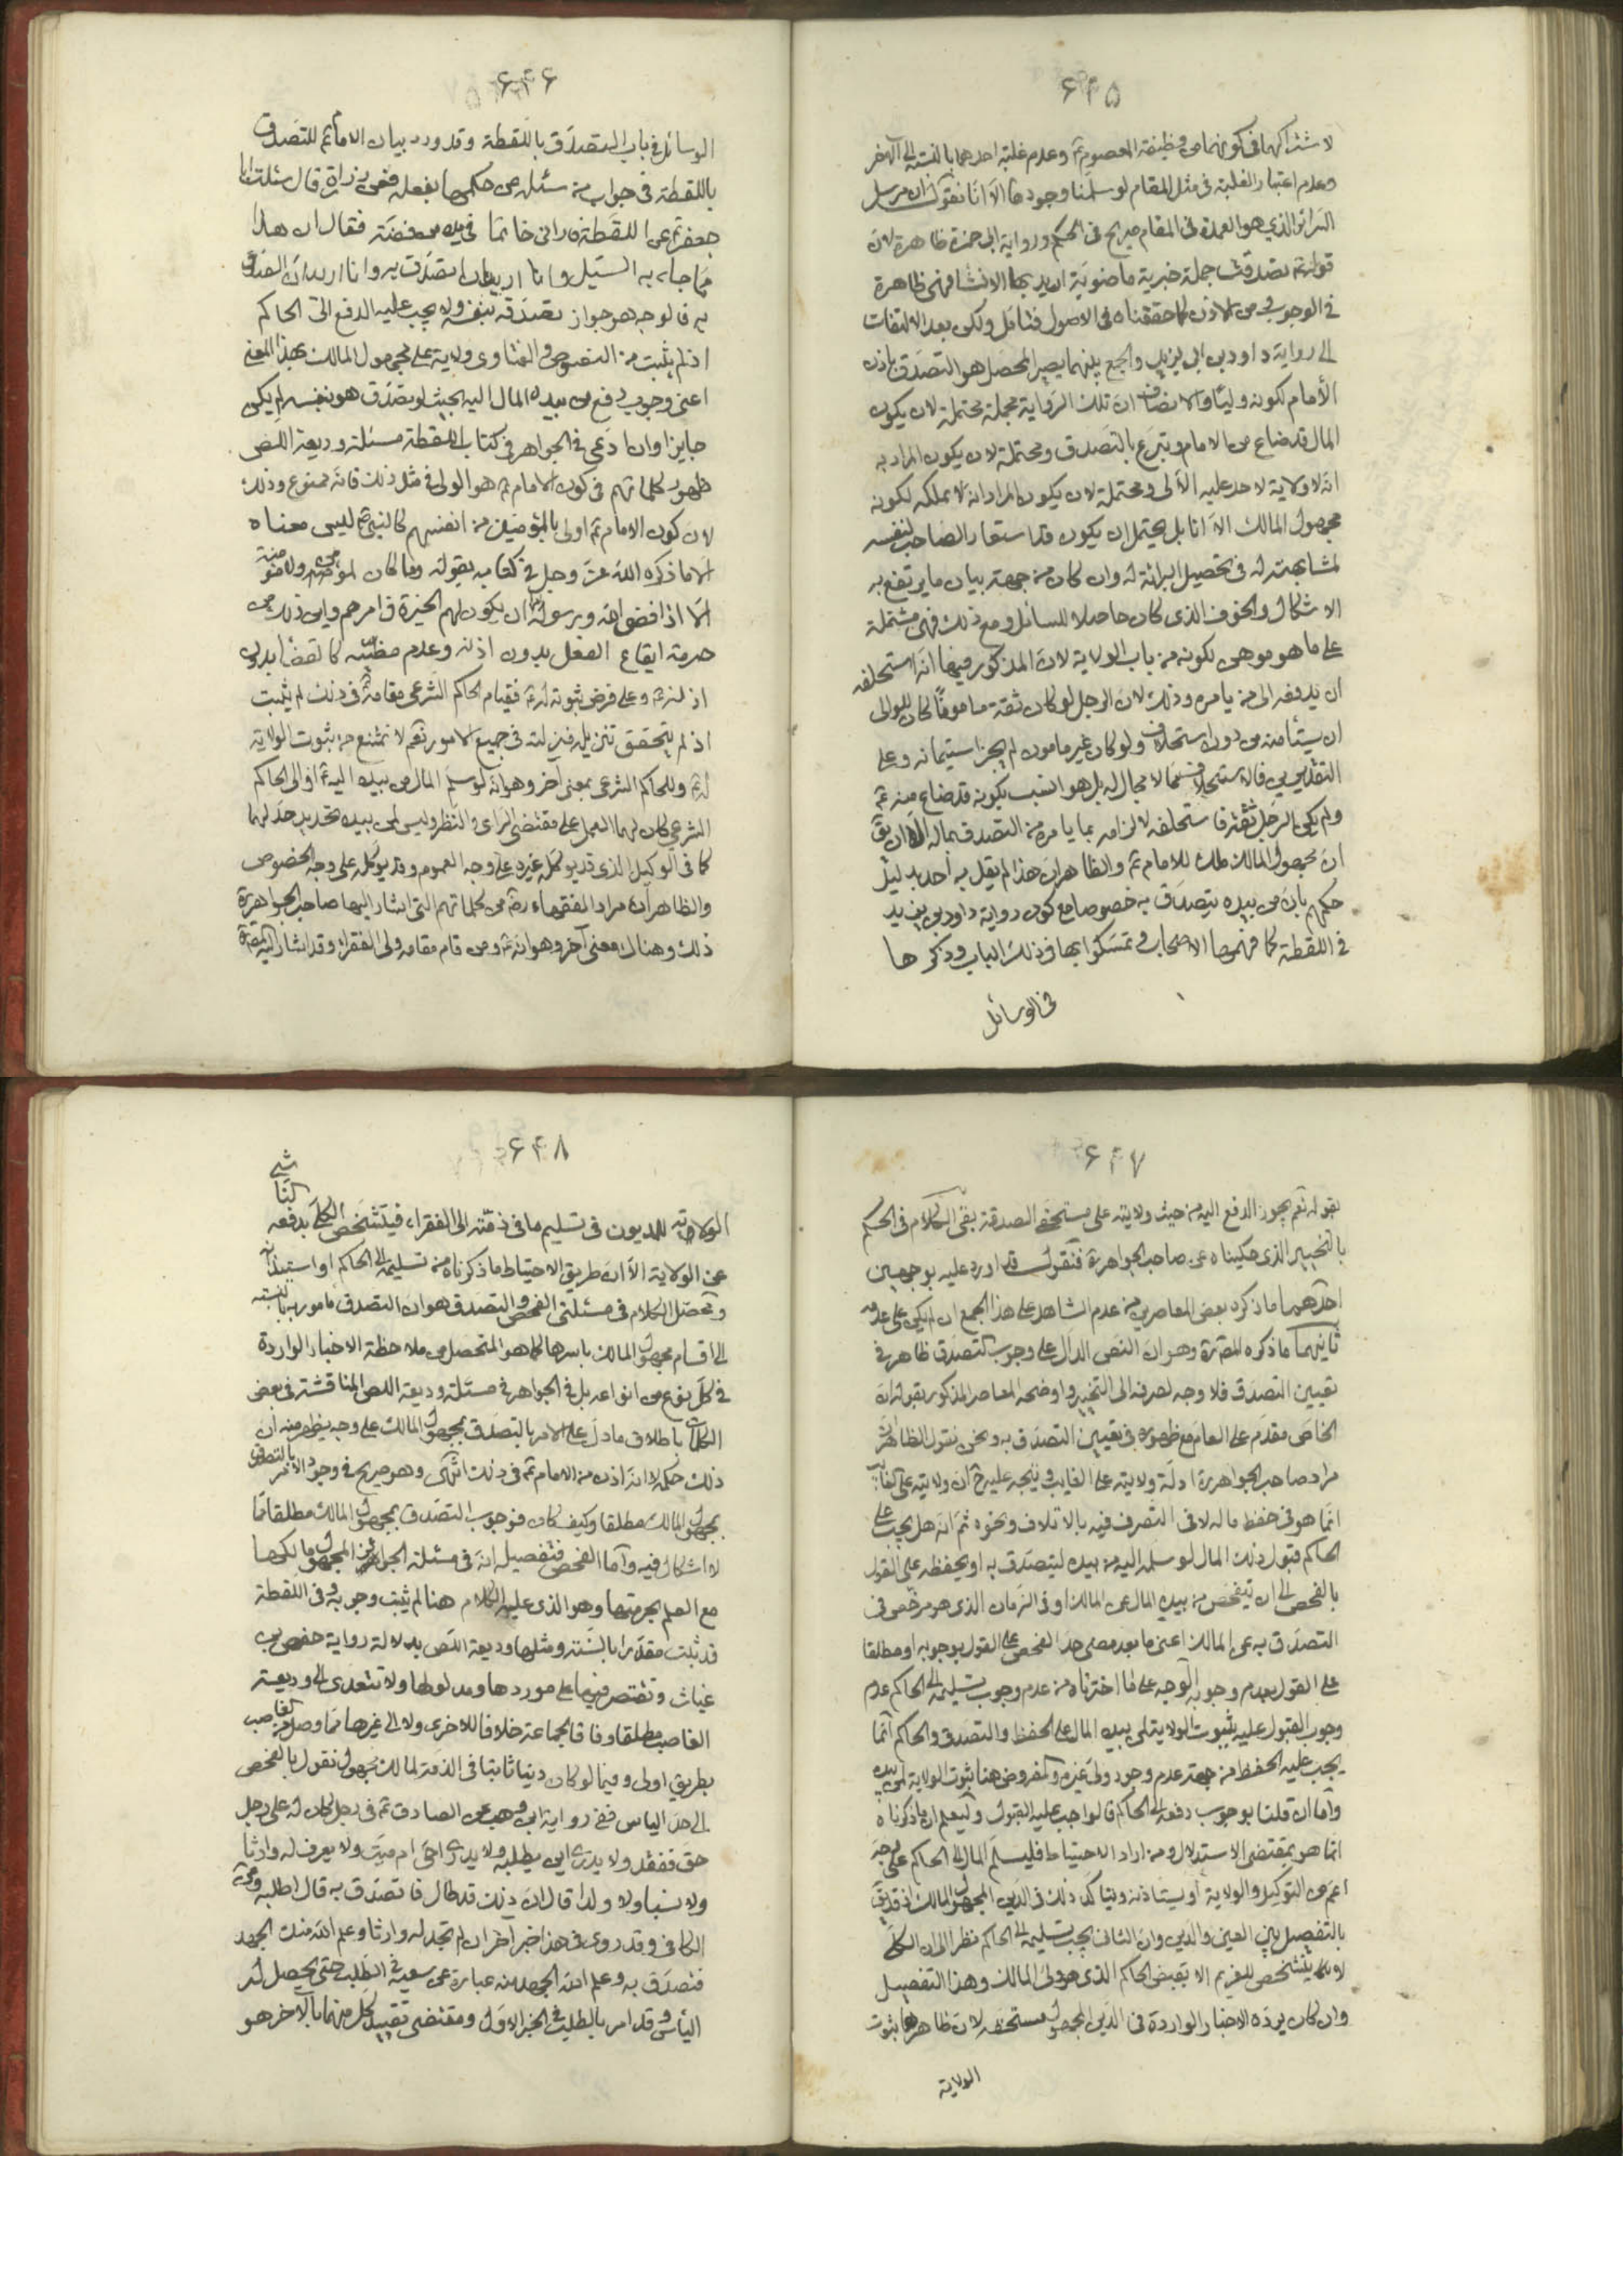 ۶۴۵
لاشتراكهما فى كونهما من وظيفة المعصوم ع وعدم غلبة احدهما بالنسبة الى الآخر
وعدم اعتبار الغلبة فى مثل المقام لو سلمنا وجودها الا انا نقول ان مرسل
السرائر الذي هو العمدة فى المقام صريح فى الحكم ورواية ابى حمزة ظاهرة لان
قوله ع تصدقت جملة خبرية ماضوية اريد بها الانشاء فهى ظاهرة
فى الوجوب من الاذن كما حققناه فى الاصول فتامل ولكن بعد الالتفات
الى رواية داود بن ابى يزيد والجمع بينهما يصير المحصل هو التصدق باذن
الأمام لكونه وليا والانصاف ان تلك الرواية مجملة محتملة لان يكون
المال قد ضاع من الامام وتبرع بالتصدق ومحتملة لان يكون المراد به
انه لا ولاية لاحد عليه الا لى ومحتملة لان يكون المراد انه لا يملكه لكونه
مجهول المالك الا انا بل يحتمل ان يكون قد استعار الصاحب لنفسه
لمشابهته له فى تحصيل البرائة له وان كان من جهة بيان ما يرتفع به
الاشكال والخوف الذى كان حاصلا للسائل ومع ذلك فهى مشتملة
على ما هو موهن لكونه من باب الولاية لان المذكور فيها انه استحلفه
ان يدفعه الى من يامره وذلك لان الرجل لو كان ثقة مامونا لكان للوالى
ان يستأمنه من دون استحلاف ولو كان غير مامون لم يجز استيمانه وعلى
التقديرين فالاستحلاف مما لا مجال له بل هو انسب بكونه قد ضاع منه ع
ولم يكن الرجل ثقة فاستحلفه لالزامه بما يامره من التصدق بماله الا ان يق
ان مجهول المالك ملك للامام ع والظاهر ان هذا لم يقل به أحد بدليل
حكمهم بان من بيده يتصدق به خصوصا مع كون رواية داود بن يزيد
فى اللقطة كما فهمها الاصحاب وتمسكوا بها فى ذلك الباب وذكرها
فى الوسائل
۶۴۶
الوسائل فى باب التصدق باللقطة وقد ورد بيان الامام ع للتصدق
باللقطة فى جواب من سئله عن حكمها بفعله فعن زرارة قال سئلت ابا
جعفر ع عن اللقطة فارانى خاتما فى يده من فضة فقال ان هذا
مما جاء به السيل وانا اريد ان اتصدق به وانا اريد ان اتصدق
به فالوجه هو جواز تصدقه بنفسه ولا يجب عليه الدفع الى الحاكم
اذ لم يثبت من النصوص والفتاوى ولاية على مجهول المالك بهذا المعنى
اعنى وجوب دفع من بيده المال اليه بحيث لو تصدق هو بنفسه لم يكن
جايزا وان ادعى فى الجواهر فى كتاب اللقطة مسئلة وديعة اللص
ظهور كلماتهم فى كون الامام ع هو الولى فى مثل ذلك فانه ممنوع وذلك
لان كون الامام ع اولى بالمؤمنين من انفسهم كالنبى ص ليس معناه
الا ما ذكره الله عز وجل فى كتابه بقوله وما كان لمؤمن ولا مؤمنة
الا اذا قضى الله ورسوله ان يكون لهم الخيرة فى امرهم واين ذلك من
حرمة ايقاع الفعل بدون اذنه وعدم مضيه كالقضاء بدون
اذنه ع وعلى فرض ثبوته له ع فقيام الحاكم الشرعى مقامه ع فى ذلك لم يثبت
اذ لم يتحقق تنزيله منزلته فى جميع الامور نعم لا نمتنع من ثبوت الولاية
له ع وللحاكم الشرعى بمعنى آخر وهو انه لو سلم المال من بيده اليه ع او الى الحاكم
الشرعى كان لهما العمل على مقتضى الراى والنظر وليس لمن بيده تحديد حد لهما
كما فى الوكيل الذى قد يوكله غيره على وجه العموم وقد يوكله على وجه الخصوص
والظاهر ان مراد الفقهاء رض من كلماتهم التى اشار اليها صاحب الجواهر ره
ذلك وهناك معنى آخر وهو انه ع ومن قام مقامه ولى الفقراء وقد اشار اليه المص ره
۶۴۷
بقوله نعم يجوز الدفع اليه من حيث ولايته على مستحقى الصدقة بقى الكلام فى الحكم
بالتخيير الذى حكيناه عن صاحب الجواهر ره فنقول قد اورد عليه بوجهين
احدهما ما ذكره بعض المعاصرين من عدم الشاهد على هذا الجمع ان لم يكن على عدمه
ثانيهما ما ذكره المص ره وهو ان النص الدال على وجوب التصدق ظاهر فى
تعيين التصدق فلا وجه لصرفه الى التخيير واوضحه المعاصر المذكور بقوله ان
الخاص مقدم على العام مع ظهوره فى تعيين التصدق به ونحن نقول الظاهر ان
مراد صاحب الجواهر ره ادلة ولايته على الغايب ويتجه عليه ح ان ولايته على الغايب
انما هو فى حفظ ماله لا فى التصرف فيه بالاتلاف ونحوه ثم انه هل يجب على
الحاكم قبول ذلك المال لو سلمه اليه من بيده ليتصدق به او يحفظه على القول
بالفحص الى ان يتفحص من بيده المال عن المالك او فى الزمان الذى هو مرخص فى
التصدق به عن المالك اعنى ما بعد مضى حد الفحص على القول بوجوبه او مطلقا
على القول بعدم وجوبه الوجه على ما اخترناه من عدم وجوب تسليمه الى الحاكم عدم
وجوب القبول عليه بثبوت الولاية لمن بيده المال على الحفظ والتصدق والحاكم انما
يجب عليه الحفظ من جهة عدم وجود ولى غيره والمفروض هنا ثبوت الولاية لمن بيده
واما ان قلنا بوجوب دفعه الى الحاكم فالواجب عليه القبول وليعلم ان ما ذكرناه
انما هو بمقتضى الاستدلال ومن اراد الاحتياط فليسلم المال الى الحاكم على وجه
اعم من التوكيل والولاية أو يستاذنه ويتاكد ذلك فى الدين المجهول المالك اذ قد يق
بالتفصيل بين العين والدين وان الثانى يجب تسليمه الى الحاكم نظرا الى ان الكلى
لا يتشخص للغريم الا بقبض الحاكم الذى هو ولى المالك وهذا التفصيل
وان كان يرده الاخبار الواردة فى الدين المجهول مستحقه لان ظاهرها ثبوت
الولاية
۶۴۸
الولاية للمديون فى تسليم ما فى ذمته الى الفقراء فيتشخص الكلى بدفعه
عن الولاية الا ان طريق الاحتياط ما ذكرناه من تسليمه الى الحاكم او استيذانه
ومحصل الكلام فى مسئلتى الفحص والتصدق هو ان التصدق مامور به بالنسبة
الى اقسام مجهول المالك باسرها كما هو المتحصل من ملاحظة الاخبار الواردة
فى كل نوع من انواعه بل فى الجواهر فى مسئلة وديعة اللص المناقشة فى بعض
الكلمات باطلاق ما دل على الامر بالتصدق بمجهول المالك على وجه يظهر منه ان
ذلك حكمه لا انه اذن من الامام ع فى ذلك انتهى وهو صريح فى وجود الأمر بالتصدق
بمجهول المالك مطلقا وكيف كان فوجوب التصدق بمجهول المالك مطلقا مما
لا اشكال فيه واما الفحص فتفصيله انه فى مسئلة الجوائز المجهول مالكها
مع العلم بحرمتها وهو الذى عليه الكلام هنا لم يثبت وجوبه وفى اللقطة
قد ثبت مقدرا بالسنة ومثلها وديعة اللص بدلالة رواية حفص بن
غياث ونقتصر فيهما على موردها ومدلولها ولا نتعدى الى وديعة
الغاصب مطلقا وفاقا لجماعة خلافا للاخرى ولا الى غيرها مما وصل من الغاصب
بطريق اولى وفيما لو كان دينا ثابتا فى الذمة لمالك مجهول نقول بالفحص
الى حد الياس ففى رواية ابن وهب عن الصادق ع فى رجل كان له على رجل
حق ففقد ولا يدرى اين يطلبه ولا يدرى احى ام ميت ولا يعرف له وارثا
ولا نسبا ولا ولدا قال ان ذلك قد طال فاتصدق به قال اطلبه وعن
الكافى وقد روى فى هذا خبر آخر ان لم تجد له وارثا وعلم الله منك الجهد
فتصدق به وعلم الله الجهد منه عبارة عن سعيه فى الطلب حتى يحصل له
اليأس وقد امر بالطلب فى الخبر الاول ومقتضى تقييد كل منهما بالآخر هو